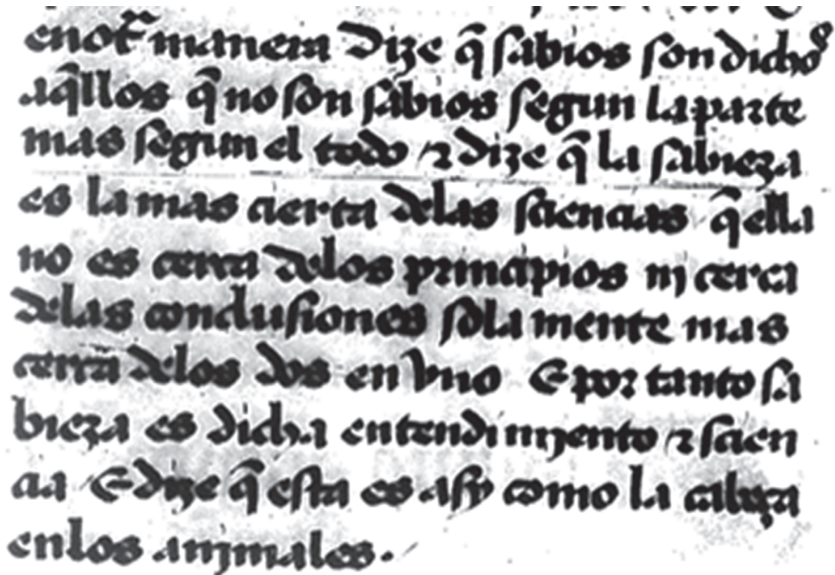 enotᷓ manera dize q̃ sabios son dichoꝰ
aq̃llos q̃ no son sabios segun la parte
mas segun el todo ⁊ dize q̃ la sabieza
es la mas cierta delas sciencias q̃ ella
no es cerca delos principios nj cerca
delas conclusiones sola mente mas
cerca delos dos en vno E por tanto sa
bieza es dicha entendimjento ⁊ scien
cia E dize q̃ esta es asy como la cabeça
enlos anjmales.